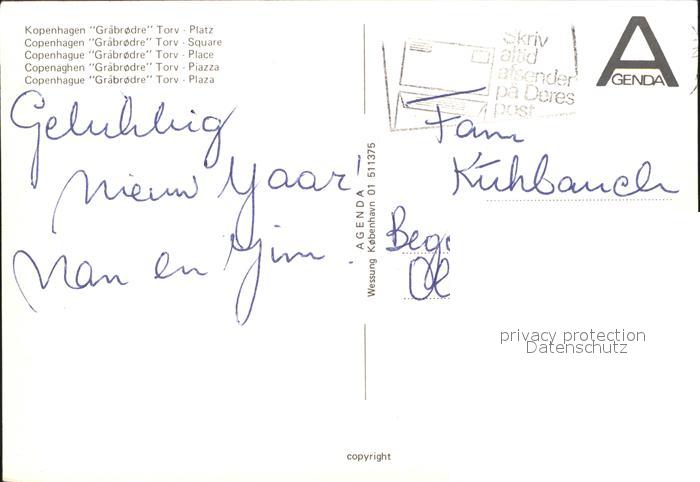 Kopenhagen "Gråbrødre" Torv - Platz
Copenhagen "Gråbrødre" Torv - Square
Copenhague "Gråbrødre" Torv - Place
Copenaghen "Gråbrødre" Torv - Piazza
Copenhague "Gråbrødre" Torv - Plaza
Gelukkig
Nieuw Yaar!
Nan en Yim.
AGENDA
Wessung København 01 511375
Skriv
altid
afsender
på Deres
post
AGENDA
Fam
Kühbauch
privacy protection
Datenschutz
copyright